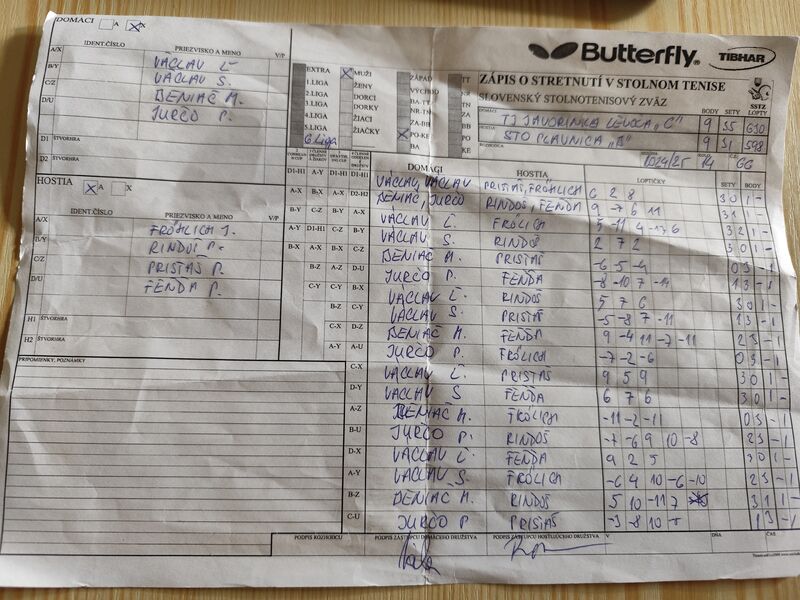 DOMÁCI A X
Butterfly TIBHAR
IDENT.ČÍSLO PRIEZVISKO A MENO V/P
A/X VÁCLAV Ľ
B/Y VÁCLAV S.
C/Z BENIAČ M.
D/U JURČO P.
D1 ŠTVORHRA
D2
EXTRA MUŽI ZÁPAD TT
1.LIGA ŽENY VÝCHOD
2.LIGA DORCI BA-TT
3.LIGA DORKY
4.LIGA ŽIACI
5.LIGA ŽIAČKY PO-KE
6.Liga BA
ZÁPIS O STRETNUTÍ V STOLNOM TENISE
SLOVENSKÝ STOLNOTENISOVÝ ZVÄZ
SSTZ
BODY SETY LOPTY
TJ JAVORINKA LEVOČA "C" 9 35 630
STO PLAVNICA "A" 9 31 598
HOSTIA A X
IDENT.ČÍSLO PRIEZVISKO A MENO V/P
A/X FRÖHLICH J.
B/Y RINDOŠ P.
C/Z PRISTAŠ P.
D/U FENDA P.
H1 ŠTVORHRA
H2 ŠTVORHRA
PRIPOMIENKY, POZNÁMKY
DOMÁCI HOSTIA LOPTIČKY SETY BODY
VÁCLAV, VÁCLAV PRISTAŠ, FRÖHLICH 6 2 8 3 0 1 -
BENIAČ, JURČO RINDOŠ, FENDA 9 -7 6 11 3 1 1 -
VÁCLAV Ľ. FRÖLICH 5 -11 4 -13 6 3 2 1 -
VÁCLAV S. RINDOŠ 2 7 2 3 0 1 -
BENIAČ M. PRISTAŠ -6 -5 -4 0 3 - 1
JURČO P. FENDA -8 -10 7 -14 1 3 - 1
VÁCLAV Ľ RINDOŠ 5 7 6 3 0 1 -
VÁCLAV S. PRISTAŠ -5 -8 7 -11 1 3 - 1
BENIAČ M. FENDA 9 -4 11 -7 -11 2 3 - 1
JURČO P. FRÖLICH -7 -2 -6 0 3 - 1
VÁCLAV Ľ. PRISTAŠ 9 5 9 3 0 1 -
VÁCLAV S FENDA 6 7 6 3 0 1 -
BENIAČ M. FRÖLICH -11 -2 -11 0 3 - 1
JURČO P. RINDOŠ -7 -6 9 10 -8 2 3 - 1
VÁCLAV Ľ FENDA 9 2 5 3 0 1 -
VÁCLAV S. FRÖLICH -6 4 10 -6 -10 2 3 - 1
BENIAČ M. RINDOŠ 5 10 -11 7 3 1 1 -
JURČO P PRISTAŠ -3 -8 10 1 3 - 1
PODPIS ROZHODCU PODPIS ZÁSTUPCU DOMÁCEHO DRUŽSTVA PODPIS ZÁSTUPCU HOSŤUJÚCEHO DRUŽSTVA V DŇA ČAS